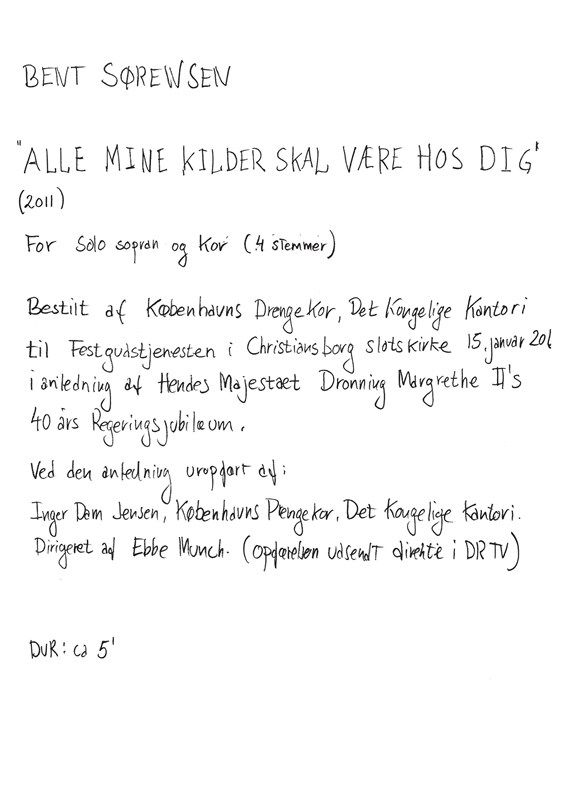 BENT SØRENSEN
"ALLE MINE KILDER SKAL VÆRE HOS DIG"
(2011)
For Solo sopran og Kor (4 stemmer)
Bestilt af Københavns Drengekor, Det Kongelige Kantori
til Festgudstjenesten i Christiansborg slotskirke 15. januar
i anledning af Hendes Majestaet Dronning Margrethe II's
40 års Regeringsjubilæum.
Ved den anledning uropført af:
Inger Dam Jensen, Københavns Drengekor, Det Kongelige Kantori.
Dirigeret af Ebbe Munch. (Opførelsen udsendt direkte i DR TV)
DUR: ca 5'